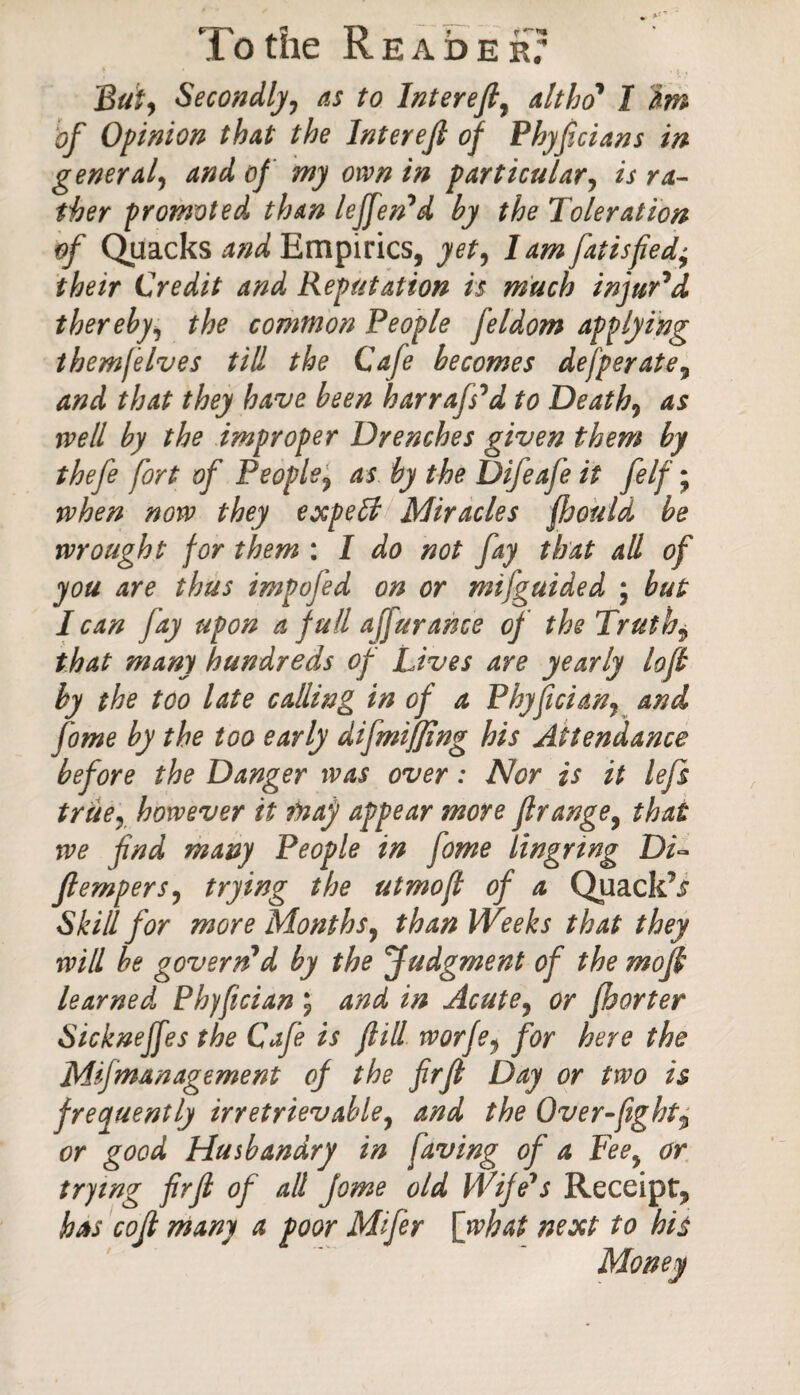 To the READER.
But, Secondly, as to Intereſt, altho' I am
of Opinion that the Intereſt of Phyſicians in
general, and of my own in particular, is ra-
ther promoted than leſſen'd by the Toleration
of Quacks and Empirics, yet, I am ſatisfied,
their Credit and Reputation is much injur'd
thereby, the common People ſeldom applying
themſelves till the Caſe becomes deſperate,
and that they have been harraſs'd to Death, as
well by the improper Drenches given them by
theſe ſort of People, as by the Diſeaſe it ſelf;
when now they expect Miracles ſhould be
wrought for them : I do not ſay that all of
you are thus impoſed on or miſguided ; but
I can ſay upon a full aſſurance of the Truth,
that many hundreds of Lives are yearly loſt
by the too late calling in of a Phyſician, and
ſome by the too early diſmiſſing his Attendance
before the Danger was over : Nor is it leſs
true, however it may appear more ſtrange, that
we find many People in ſome lingring Di-
ſtempers, trying the utmoſt of a Quack's
Skill for more Months, than Weeks that they
will be govern'd by the Judgment of the moſt
learned Phyſician ; and in Acute, or ſhorter
Sickneſſes the Caſe is ſtill worſe, for here the
Miſmanagement of the firſt Day or two is
frequently irretrievable, and the Over-ſight,
or good Husbandry in ſaving of a Fee, or
trying firſt of all ſome old Wife's Receipt,
has coſt many a poor Miſer [what next to his
Money